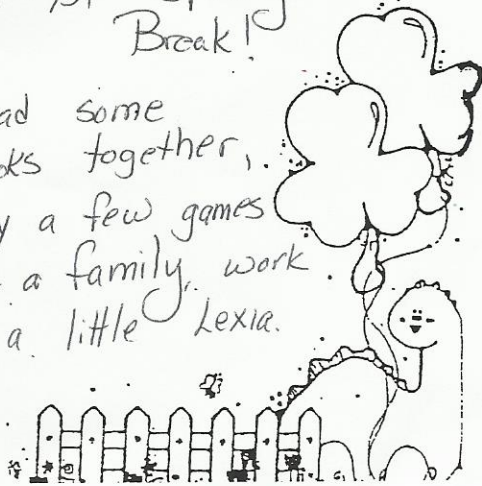 Break!
ad some
oks together,
y a few games
a family, work
a little Lexia.